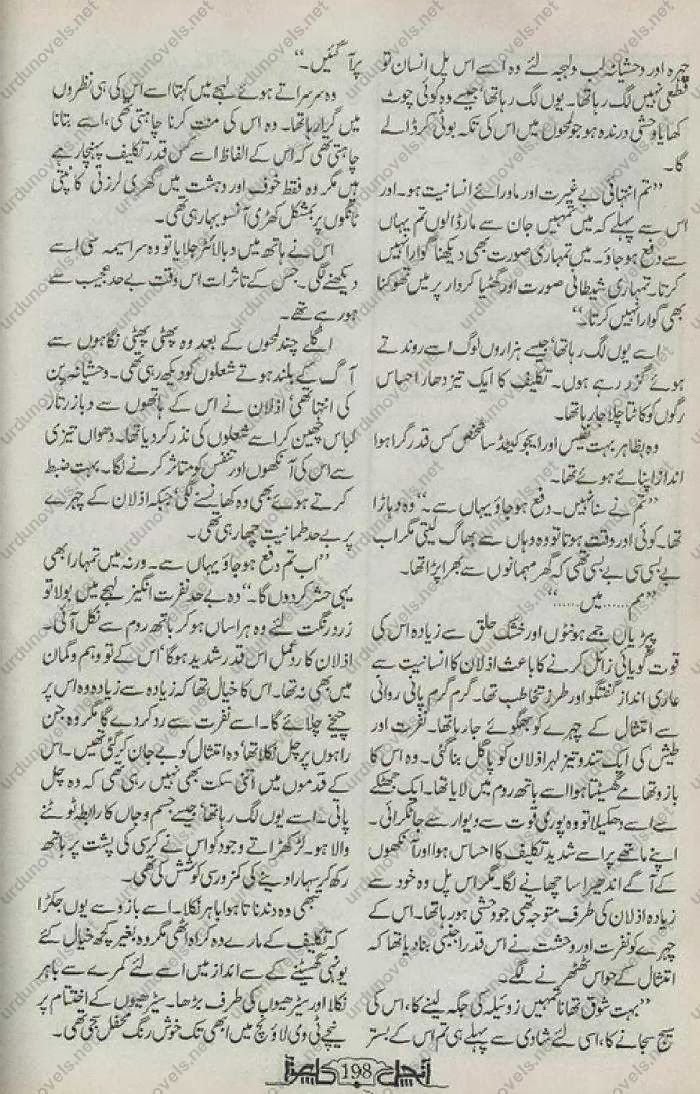 چہرہ اور وحشیانہ لب ولہجہ لئے وہ اسے اس پل انسان تو
قطعی نہیں لگ رہا تھا۔ یوں لگ رہا تھا' جیسے وہ کوئی چوٹ
کھایا وحشی درندہ ہو جو لمحوں میں اس کی تکہ بوٹی کر ڈالے
گا۔
"تم انتہائی بے غیرت اور ماورائے انسانیت ہو۔ اور
اس سے پہلے کہ میں تمہیں جان سے مار ڈالوں تم یہاں
سے دفع ہو جاؤ۔ میں تمہاری صورت بھی دیکھنا گوارا نہیں
کرتا۔ تمہاری شیطانی صورت اور گھٹیا کردار پر میں تھوکنا
بھی گوارا نہیں کرتا۔"
اسے یوں لگ رہا تھا' جیسے ہزاروں لوگ اسے روندتے
ہوئے گزر رہے ہوں۔ تکلیف کا ایک تیز دھار احساس
رگوں کو کاٹتا چلا جا رہا تھا۔
وہ بظاہر بہت نفیس اور ایجوکیٹڈ سا شخص کس قدر گرا ہوا
انداز اپنائے ہوئے تھا۔
"تم نے سنا نہیں۔ دفع ہو جاؤ یہاں سے۔" وہ دہاڑا
تھا۔ کوئی اور وقت ہوتا تو وہ وہاں سے بھاگ لیتی مگر اب
بے بسی سی بے بسی تھی کہ گھر مہمانوں سے بھرا پڑا تھا۔
"مم...... میں......"
پپڑیاں جمے ہونٹوں اور خشک حلق سے زیادہ اس کی
قوت گویائی زائل کرنے کا باعث اذلان کا انسانیت سے
عاری انداز گفتگو اور طرز تخاطب تھا۔ گرم گرم پانی روانی
سے امتثال کے چہرے کو بھگوئے جا رہا تھا۔ نفرت اور
طیش کی ایک تند و تیز لہر اذلان کو پاگل بنا گئی۔ وہ اس کا
بازو تھامے گھسیٹتا ہوا اسے باتھ روم میں لایا تھا۔ ایک جھٹکے
سے اسے دھکیلا تو وہ پوری قوت سے دیوار سے جا ٹکرائی۔
اپنے ماتھے پر اسے شدید تکلیف کا احساس ہوا اور آنکھوں
کے آگے اندھیرا سا چھانے لگا۔ مگر اس پل وہ خود سے
زیادہ اذلان کی طرف متوجہ تھی جو وحشی ہو رہا تھا۔ اس کے
چہرے کو نفرت اور وحشت نے اس قدر اجنبی بنا دیا تھا کہ
امتثال کے حواس ٹھٹھرنے لگے۔
"بہت شوق تھا نا تمہیں زوئیلہ کی جگہ لینے کا، اس کی
سیج سجانے کا، اسی لئے شادی سے پہلے ہی تم اس کے بستر
پر آ گئیں۔"
وہ سرسراتے ہوئے لہجے میں کہتا اسے اس کی ہی نظروں
میں گرا رہا تھا۔ وہ اس کی منت کرنا چاہتی تھی، اسے بتانا
چاہتی تھی کہ اس کے الفاظ اسے کس قدر تکلیف پہنچا رہے
ہیں مگر وہ فقط خوف اور دہشت میں گھری لرزتی کانپتی
ٹانگوں پر بمشکل کھڑی آنسو بہا رہی تھی۔
اس نے ہاتھ میں دبا لائٹر جلایا تو وہ سراسیمہ سی اسے
دیکھنے لگی۔ جس کے تاثرات اس وقت بے حد عجیب سے
ہو رہے تھے۔
اگلے چند لمحوں کے بعد وہ پھٹی پھٹی نگاہوں سے
آگ کے بلند ہوتے شعلوں کو دیکھ رہی تھی۔ وحشیانہ پن
کی انتہا تھی' اذلان نے اس کے ہاتھوں سے دبا زرتار
لباس چھین کر اسے شعلوں کی نذر کر دیا تھا۔ دھواں تیزی
سے اس کی آنکھوں اور تنفس کو متاثر کرنے لگا۔ بہت ضبط
کرتے ہوئے بھی وہ کھانسنے لگی جبکہ اذلان کے چہرے
پر بے حد طمانیت چھا رہی تھی۔
"اب تم دفع ہو جاؤ یہاں سے۔ ورنہ میں تمہارا بھی
یہی حشر کر دوں گا۔" وہ بے حد نفرت انگیز لہجے میں بولا تو
زرد رنگت لئے وہ ہراساں ہو کر باتھ روم سے نکل آئی۔
اذلان کا ردعمل اس قدر شدید ہو گا' اس کے تو وہم و گمان
میں بھی نہ تھا۔ اس کا خیال تھا کہ زیادہ سے زیادہ وہ اس پر
چیخے چلائے گا۔ اسے نفرت سے رد کر دے گا مگر وہ جن
راہوں پر چل نکلا تھا' وہ امتثال کو بے جان کر گئی تھیں۔ اس
کے قدموں میں اتنی سکت بھی نہیں رہی تھی کہ وہ چل
پاتی۔ اسے یوں لگ رہا تھا' جیسے جسم و جاں کا رابطہ ٹوٹنے
والا ہو۔ لڑکھڑاتے وجود کو اس نے کرسی کی پشت پر ہاتھ
رکھ کر سہارا دینے کی کمزور سی کوشش کی تھی۔
تبھی وہ دندناتا ہوا باہر نکلا۔ اسے بازو سے یوں جکڑا
کہ تکلیف کے مارے وہ کراہ اٹھی مگر وہ بغیر کچھ خیال کئے
یونہی گھسیٹنے کے سے انداز میں اسے لئے کمرے سے باہر
نکلا اور سیڑھیوں کی طرف بڑھا۔ سیڑھیوں کے اختتام پر
نیچے ٹی وی لاؤنج میں ابھی تک خوش رنگ محفل سجی تھی۔
آنچل 198
urdunovels.net